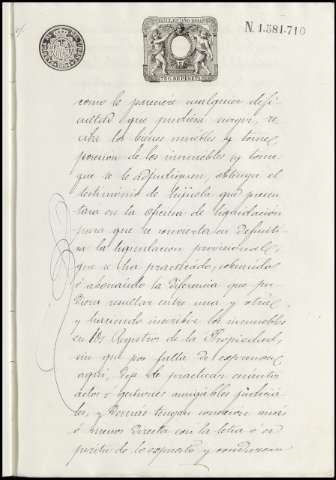 N. 1.581.710
como le parezca cualquier difi
cultad que pudiera surgir, re
ciba los bienes muebles y tome
posesion de los inmuebles y
que se le adjudiquen, obtenga el
testimonio de hijuela que presen
tara en la oficina de liquidación
para que se convierta en definiti
va la liquidacion provisional
que se ha practicado, cobrando
ó abonando la diferencia que pu
diera resultar entre una y otra,
y haciendo inscribir los inmuebles
en los Registros de la Propiedad,
sin que por falta de expresion
aqui, deje de practicar cuantos
actos ó gestiones amigables judicia
les, y demás tengan conexion más
ó menos directa con la letra ó es
píritu de lo expuesto y